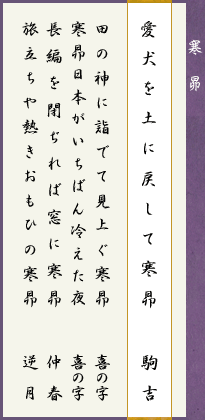 寒昴
愛犬を土に戻して寒昴　駒吉
田の神に詣でて見上ぐ寒昴　喜の字
寒昴日本がいちばん冷えた夜　喜の字
長編を閉ぢれば窓に寒昴　仲春
旅立ちや熱きおもひの寒昴　逆月